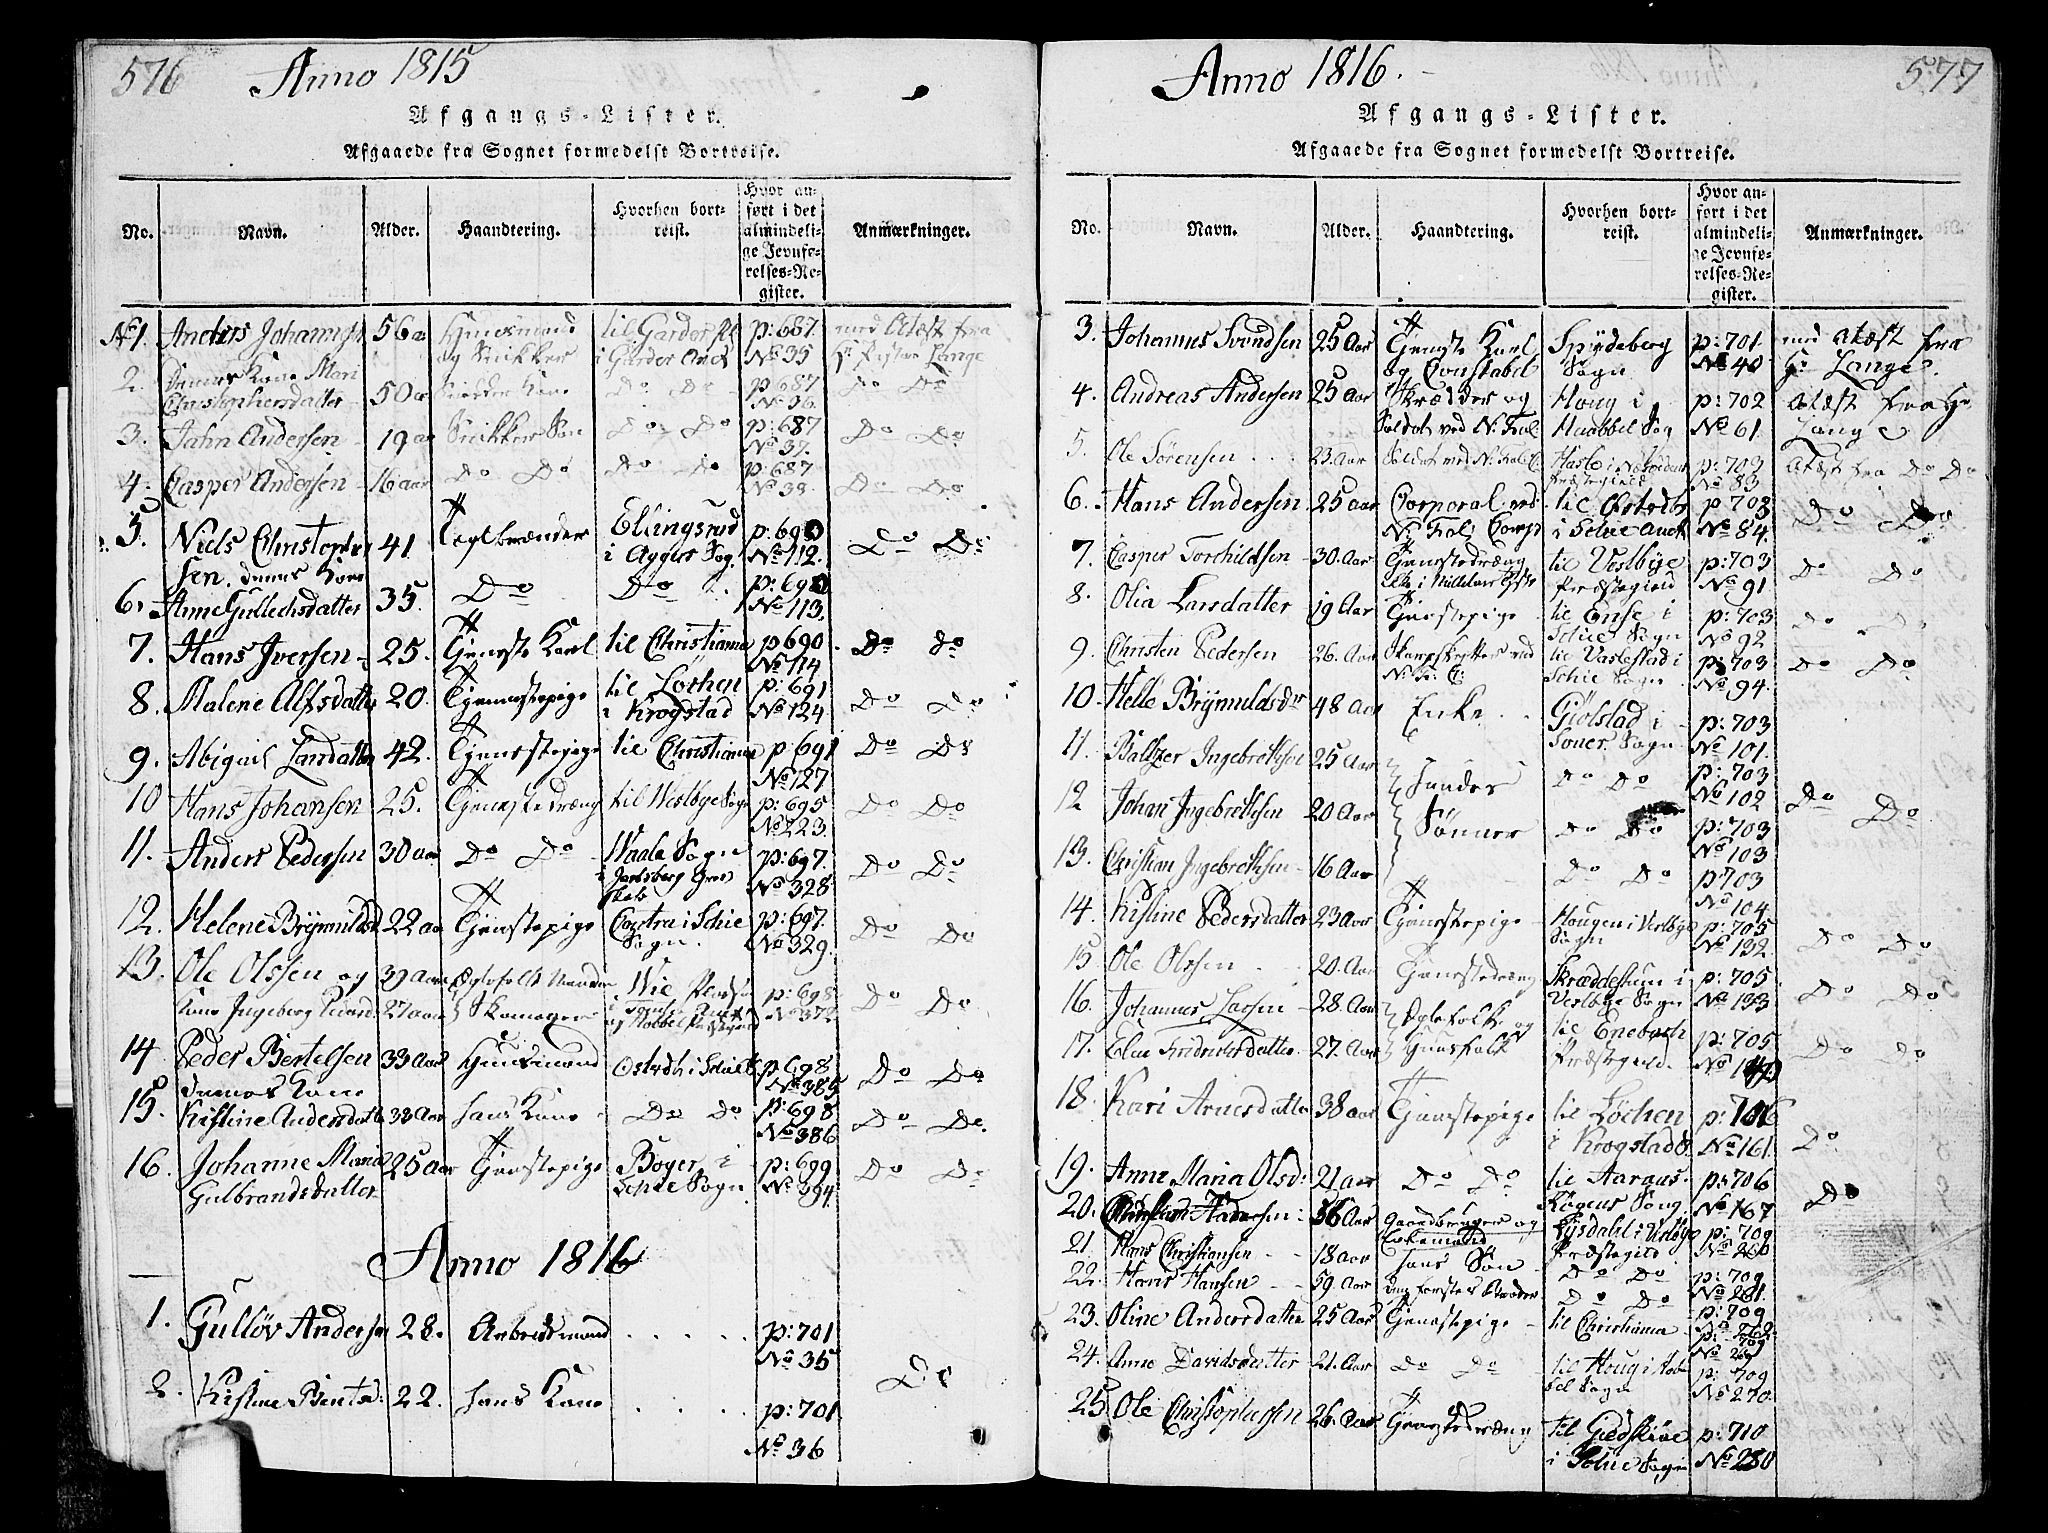 576 Anno 1815
Afgangs-Lister.
Afgaaede fra Sognet formedelst Bortreise.
No. Navn. Alder. Haandtering. Hvorhen bortreist. Hvor anført i det almindelige Jevnførelses-Register. Anmærkninger.
No 1. Anders Johannsen 56 a Huusmand og Snikker til Garder Pl i Garder Anex p: 687. No 35 med Attest fra Hr Pastor Lange
2. Dennes Kone Mari Christophersdatter 50 aar Do Do p: 687 No 36. Do Do
3. Jahn Andersen 19 a Snikker Søn Do Do p: 687 No 37. Do Do
4. Casper Andersen 16 aar Do Do Do Do p: 687 No 38. Do Do
5. Niels Christophersen. 41 Teglbrænder Ellingsrud i Aggers Sog. p: 690 No 112. Do Do
dennes Kone
6. Anne Gullechsdatter 35. Do Do p: 690 No 113.
7. Hans Iversen 25. Tjeneste Karl til Christiania p 690 No 114 Do Do
8. Malene Alfsdatter 20. Tjenestepige til Løchen i Krogstad p: 691 No 124 Do Do
9. Abigael Larsdatter 42. Tjenestepige til Christiania p: 691 No 127 Do Do
10 Hans Johansen 25. Tjenestedræng til Westbye Sogn p: 695 No 223. Do Do
11. Anders Pedersen 30 aar Do Do Waale Sogn i Jarlsberg Grevskab p: 697. No 328 Do Do
12. Helene Brynnildsd 22 aar Tjenestepige i Schie Sogn. p: 697. No 329. Do Do
13. Ole Olssen og 39 Aar Ægtefolk
Kone Ingeborg 27 aar Skomager Wie p: 698 No 372 Do Do
14 Peder Bertelsen 33 Aar Huusmand Østebh i Schie p 698 No 385 Do Do
dennes Kone
15. Kistine Andersdatter 33 Aar hans Kone Do Do p: 698 No 386 Do Do.
16. Johanne Maria Gulbrandsdatter 25 Aar Tjenstepige Boger i Schie Sogn p: 699 No 394 Do Do
Anno 1816
1. Gulløv Andersen 28. Arbeidsmand p: 701 No 35
2. Kistine Bentsd: 22. hans Kone p: 701 No 36 Do
Anno 1816. 577
Afgangs-Lister.
Afgaaede fra Sognet formedelst Bortreise.
No. Navn. Alder. Haandtering. Hvorhen bortreist. Hvor anført i det almindelige Jevnførelses-Register. Anmærkninger.
3. Johannes Svendsen 25 Aar Tjeneste Karl og Constabel Spydeberg Sogn p: 701 No 40 med Attest fra Hr Lange.
4. Andreas Andersen 25 Aar Skrædder og Soldat ved N: Houg i Haabbel Sog p: 702 No 61. Attest fra Hr Lange
5. Ole Sørensen 23. Aar Soldat ved N: Hasle i Præstegield p: 703 No 83 Attest fra Do Do
6. Hans Andersen 25 aar Corporal ved N: Corps til Østebh i Schie Anex p 703 No 84. Do Do
7. Casper Torchildsen 30. Aar Tjenestedræng til Vestbye Præstegield p: 703 No 91 Do Do
8. Olia Larsdatter 19 Aar Tjenstepige til Ense i Schie Sogn p: 703 No 92 Do Do
9. Christen Pedersen 26. Aar Skarpskytter ved N: C: til Vaslestad i Schie Sogn p: 703 No 94. Do Do
10. Helle Brynnildsdr 48 Aar Enke Giølstad i Soner Sogn p: 703 No 101.
11. Baltzer Ingebretsen 25 Aar Hendes Do Do p: 703 No 102
12 Johan Ingebretsen 20 Aar Sønner Do Do p: 703 No 103 Do Do
13. Christian Ingebretsen 16 Aar Do Do p: 703 No 104
14. Kistine Pedersdatter 23 Aar Tjenestepige Hougen i Vestbye Sogn p: 705 No 132 Do Do
15 Ole Olssen 20. Aar Tjenestedræng Skræddestuen i Vestbye Sogn p: 705 No 133 Do Do
16. Johannes Larsen 28. Aar Ægtefolk og til Enebach
17. Else Fridrichsdatter 27. Aar Huusfolk Præstegield. p: 705 Do Do
18. Kari Arnesdatter 38 aar Tjenstepige til Løchen i Krogstad S p: 706 No 161. Do
19. Anne Maria Olsd: 21 aar Do Do til Aaraas p: 706 No 167 Do
20. Andersen 56 Aar Gaardbruger og i Vestbye Præstegield p: 709 No 260
21. Hans Christiansen 18 aar hans Søn Do Do p: 709 No 261.
22. Hans Hansen 59. Aar den første s Broder Do Do p: 709
23. Oline Andersdatter 25 Aar Tjenestepige til Christiania p: 709 No 269
24. Anne Davidsdatter 21. Aar Do Do til Houg i Hobbel Sogn p: 709 No 270.
25 Ole Christophersen 26. Aar Tjenestedræng til Giedskiøe i Schie Sogn p: 710 No 280